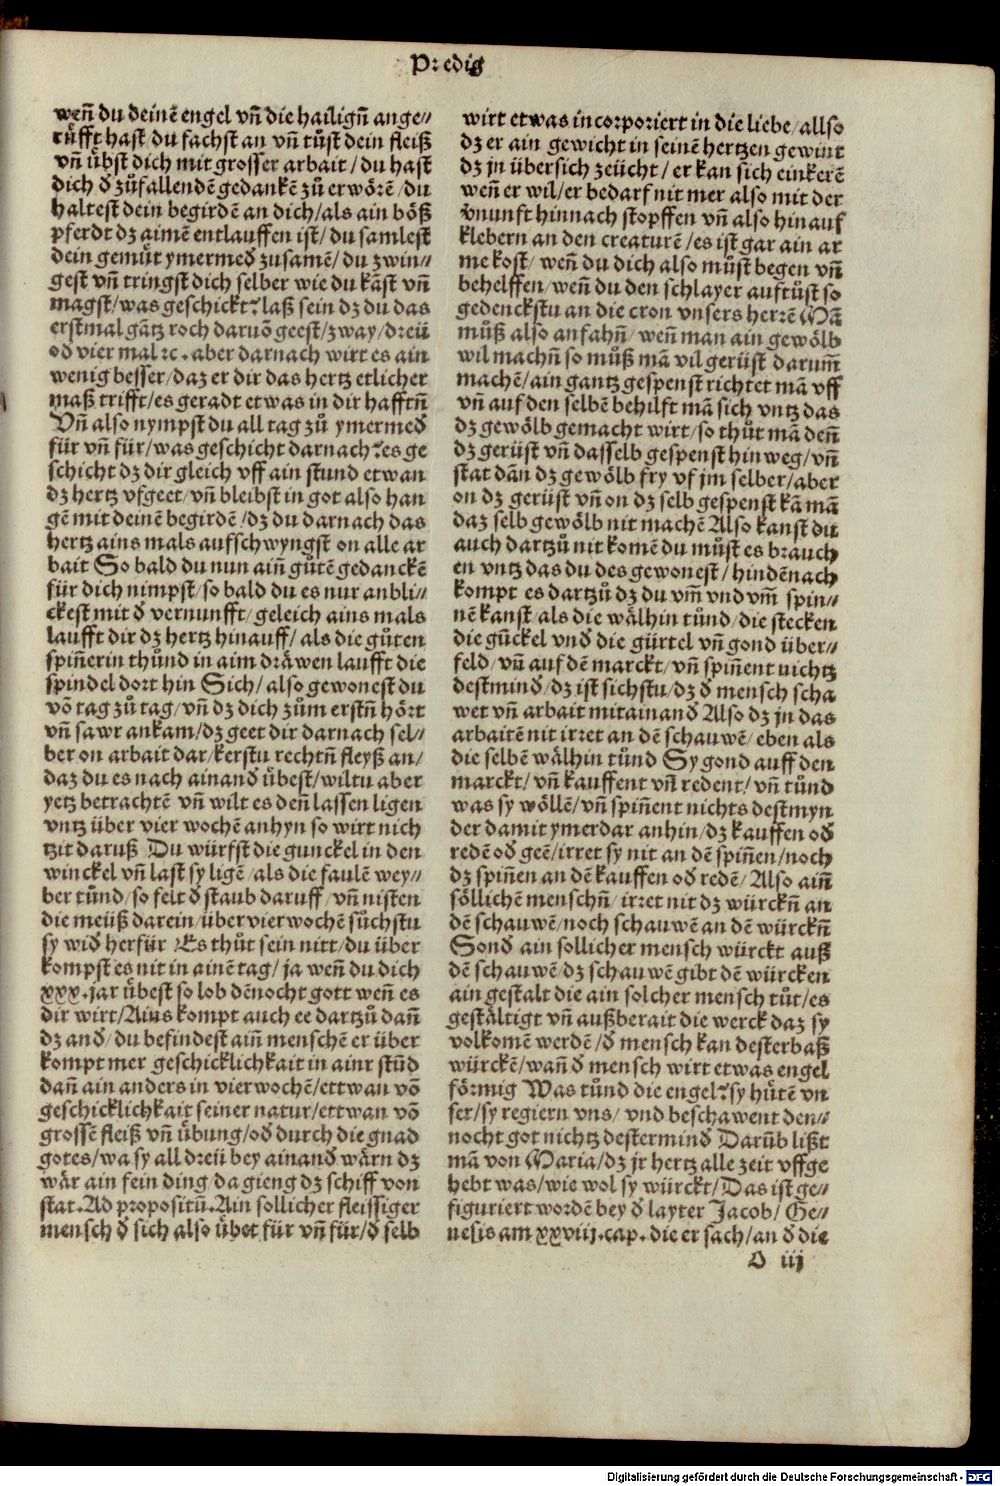 Predig
wen̄ du deinē engel vn̄ die hailign̄ ange⸗
růfft hast du fachst an vn̄ tůst dein fleiß
vn̄ übst dich mit grosser arbait / du hast
dich đ zůfallendē gedankē zů erwörē / du
haltest dein begirdē an dich / als ain böß
pferdt dz aimē entlauffen ist / du samlest
dein gemüt ymermeđ zusamē / du zwin⸗
gest vn̄ tringst dich selber wie du kāst vn̄
magst / was geschickt? laß sein dz du das
erstmal gātz roch daruō geest / zway / dreü
ođ vier mal ꝛc. aber darnach wirt es ain
wenig besser / daz er dir das hertz etlicher
maß trifft / es geradt etwas in dir hafftn̄
Vn̄ also nympst du all tag zů ymermeđ
für vn̄ für / was geschicht darnach? es ge
schicht dz dir gleich vff ain stund etwan
dz hertz vfgeet / vn̄ bleibst in got also han
gē mit deinē begirdē / dz du darnach das
hertz ains mals aufschwyngst on alle ar
bait So bald du nun ain̄ gůtē gedanckē
für dich nimpst / so bald du es nur anbli⸗
ckest mit đ vernunfft / geleich ains mals
laufft dir dz hertz hinauff / als die gůten
spin̄erin thůnd in aim dräwen laufft die
spindel dort hin Sich / also gewonest du
vō tag zů tag / vn̄ dz dich zům erstn̄ hört
vn̄ sawr ankam / dz geet dir darnach sel⸗
ber on arbait dar / kerstu rechtn̄ fleyß an /
daz du es nach ainanđ übest / wiltu aber
yetz betrachtē vn̄ wilt es den̄ lassen ligen
vntz über vier wochē anhyn so wirt nich
tzit daruß Du würfst die gunckel in den
winckel vn̄ last sy ligē / als die faulē wey⸗
ber tůnd / so felt đ staub daruff / vn̄ nisten
die meüß darein / über vier wochē sůchstu
sy wiđ herfür Es thůt sein nitt / du über
kompst es nit in ainē tag / ja wen̄ du dich
xxx. jar übest so lob dēnocht gott wen̄ es
dir wirt / Ains kompt auch ee dartzů dan̄
dz anđ / du befindest ain̄ menschē er über
kompt mer geschicklichkait in ainr stūd
dan̄ ain anders in vier wochē / ettwan vō
geschicklichkait seiner natur / ettwan vō
grossē fleiß vn̄ übung / ođ durch die gnad
gotes / wa sy all dreü bey ainanđ wärn dz
wär ain fein ding da gieng dz schiff von
stat. Ad propositū. Ain sollicher fleissiger
mensch đ sich also übet für vn̄ für / đ selb
wirt etwas incorporiert in die liebe / allso
dz er ain gewicht in seinē hertzen gewint
dz jn übersich zeücht / er kan sich einkerē
wen̄ er wil / er bedarf nit mer also mit der
v̄nunft hinnach stopffen vn̄ also hinauf
klebern an den creaturē / es ist gar ain ar
me kost / wen̄ du dich also můst begen vn̄
behelffen / wen̄ du den schlayer auftůst so
gedenckstu an die cron vnsers herrē Mā
můß also anfahn̄ / wen̄ man ain gewölb
wil machn̄ so můß mā vil gerüst darum̄
machē / ain gantz gespenst richtet mā vff
vn̄ auf den selbē behilft mā sich vntz das
dz gewölb gemacht wirt / so thůt mā den̄
dz gerüst vn̄ dasselb gespenst hinweg / vn̄
stat dān dz gewölb fry vf jm selber / aber
on dz gerüst vn̄ on dz selb gespenst kā mā
daz selb gewölb nit machē Also kanst du
auch dartzů nit komē du můst es brauch
en vntz das du des gewonest / hindēnach
kompt es dartzů dz du vm̄ vnd vm̄ spin⸗
nē kanst / als die wälhin tůnd / die stecken
die gūckel vnd die gürtel vn̄ gond über⸗
feld / vn̄ auf dē marckt / vn̄ spin̄ent nichtz
destminđ / dz ist sichstu / dz đ mensch scha
wet vn̄ arbait mitainanđ Also dz jn das
arbaitē nit irret an dē schauwē / eben als
die selbē wälhin tůnd Sy gond auff den
marckt / vn̄ kauffent vn̄ redent / vn̄ tůnd
was sy wöllē / vn̄ spin̄ent nichts destmyn
der damit ymerdar anhin / dz kauffen ođ
redē ođ geē / irret sy nit an dē spin̄en / noch
dz spin̄en an dē kauffen ođ redē / Also ain̄
söllichen menschn̄ / irret nit dz würckn̄ an
dē schauwē / noch schauwē an dē würckn̄
Sonđ ain sollicher mensch würckt auß
dē schauwē / dz schauwē gibt dē würcken
ain gestalt die ain solcher mensch tůt / es
gestältigt vn̄ außberait die werck daz sy
volkomē werdē / đ mensch kan desterbaß
würckē / wan̄ đ mensch wirt etwas engel
förmig Was tůnd die engel? sy hütē vn
ser / sy regiern vns / vnd beschawent den⸗
nocht got nichtz desterminđ Darūb lißt
mā von Maria / dz jr hertz alle zeit vffge
hebt was / wie wol sy würckt / Das ist ge⸗
figuriert wordē bey đ layter Jacob / Ge⸗
nesis am xxviij. cap. die er sach / an đ die
O iij
Digitalisierung gefördert durch die Deutsche Forschungsgemeinschaft - DFG